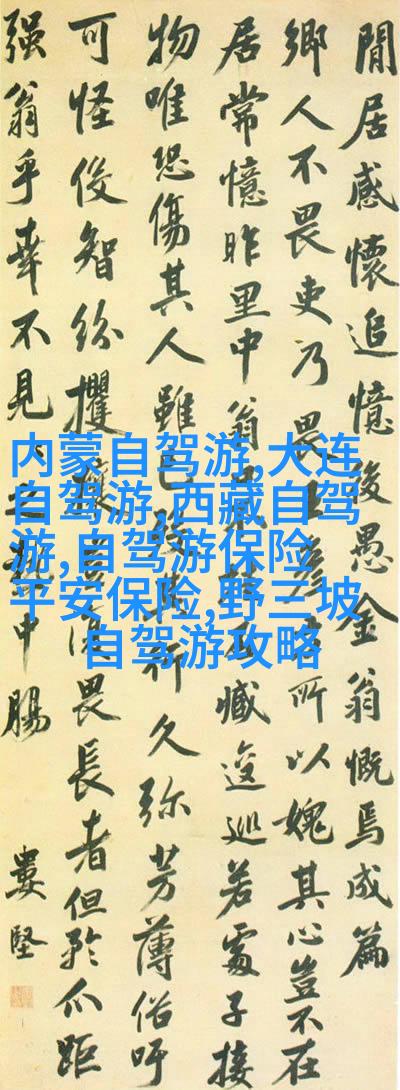 閒居感懷追憶後愚金翁慨焉成篇
鄉人不畏吏乃畏所以媿其心豈不在
居常憶昨里中翁臧逡巡若處子接
物唯恐傷其人雖已行久弥芳薄俗吁
可怪俊智紛攫畏長者但矜爪距
强翁乎幸不見中腸
婁堅
内蒙自驾游,大连
自驾游,西藏自驾
游,自驾游保险
平安保险,野三坡
自驾游攻略